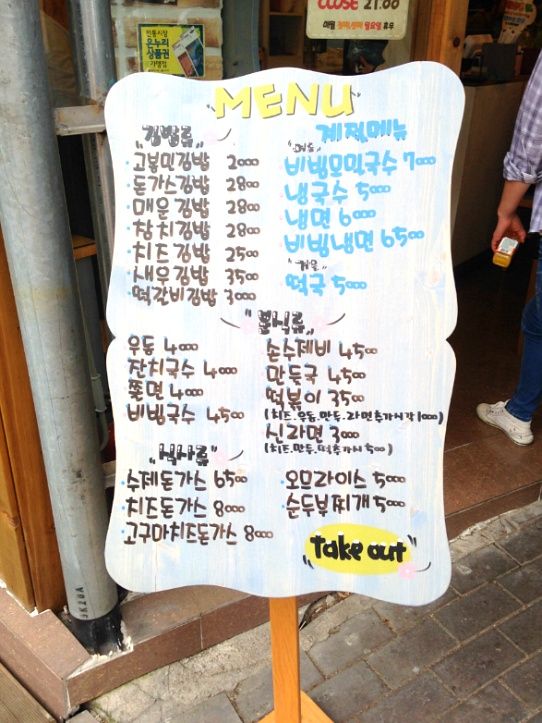 CLOSE 21:00
매월 첫째주 월요일 휴무
전통시장
온누리
상품권
가맹점
MENU
김밥류
고봉민김밥 2000
돈가스김밥 2800
매운김밥 2800
참치김밥 2800
치즈김밥 2500
새우김밥 3500
떡갈비김밥 3000
계절메뉴
여름
비빔모밀국수 7000
냉국수 5000
냉면 6000
비빔냉면 6500
겨울
떡국 5000
분식류
우동 4000
잔치국수 4000
쫄면 4000
비빔국수 4500
손수제비 4500
만둣국 4500
떡볶이 3500
(치즈.우동.만두.라면추가시각 1000)
신라면 3000
(치즈.만두.떡추가시 500)
식사류
수제돈가스 6500
치즈돈가스 8000
고구마치즈돈가스 8000
오므라이스 5000
순두부찌개 5000
take out